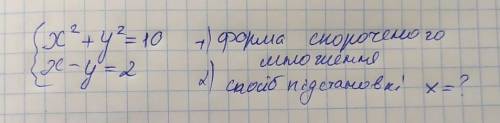 {x² + y² = 10
x - y = 2
1) форма скороченого
множення
2) спосіб підстановкі x = ?